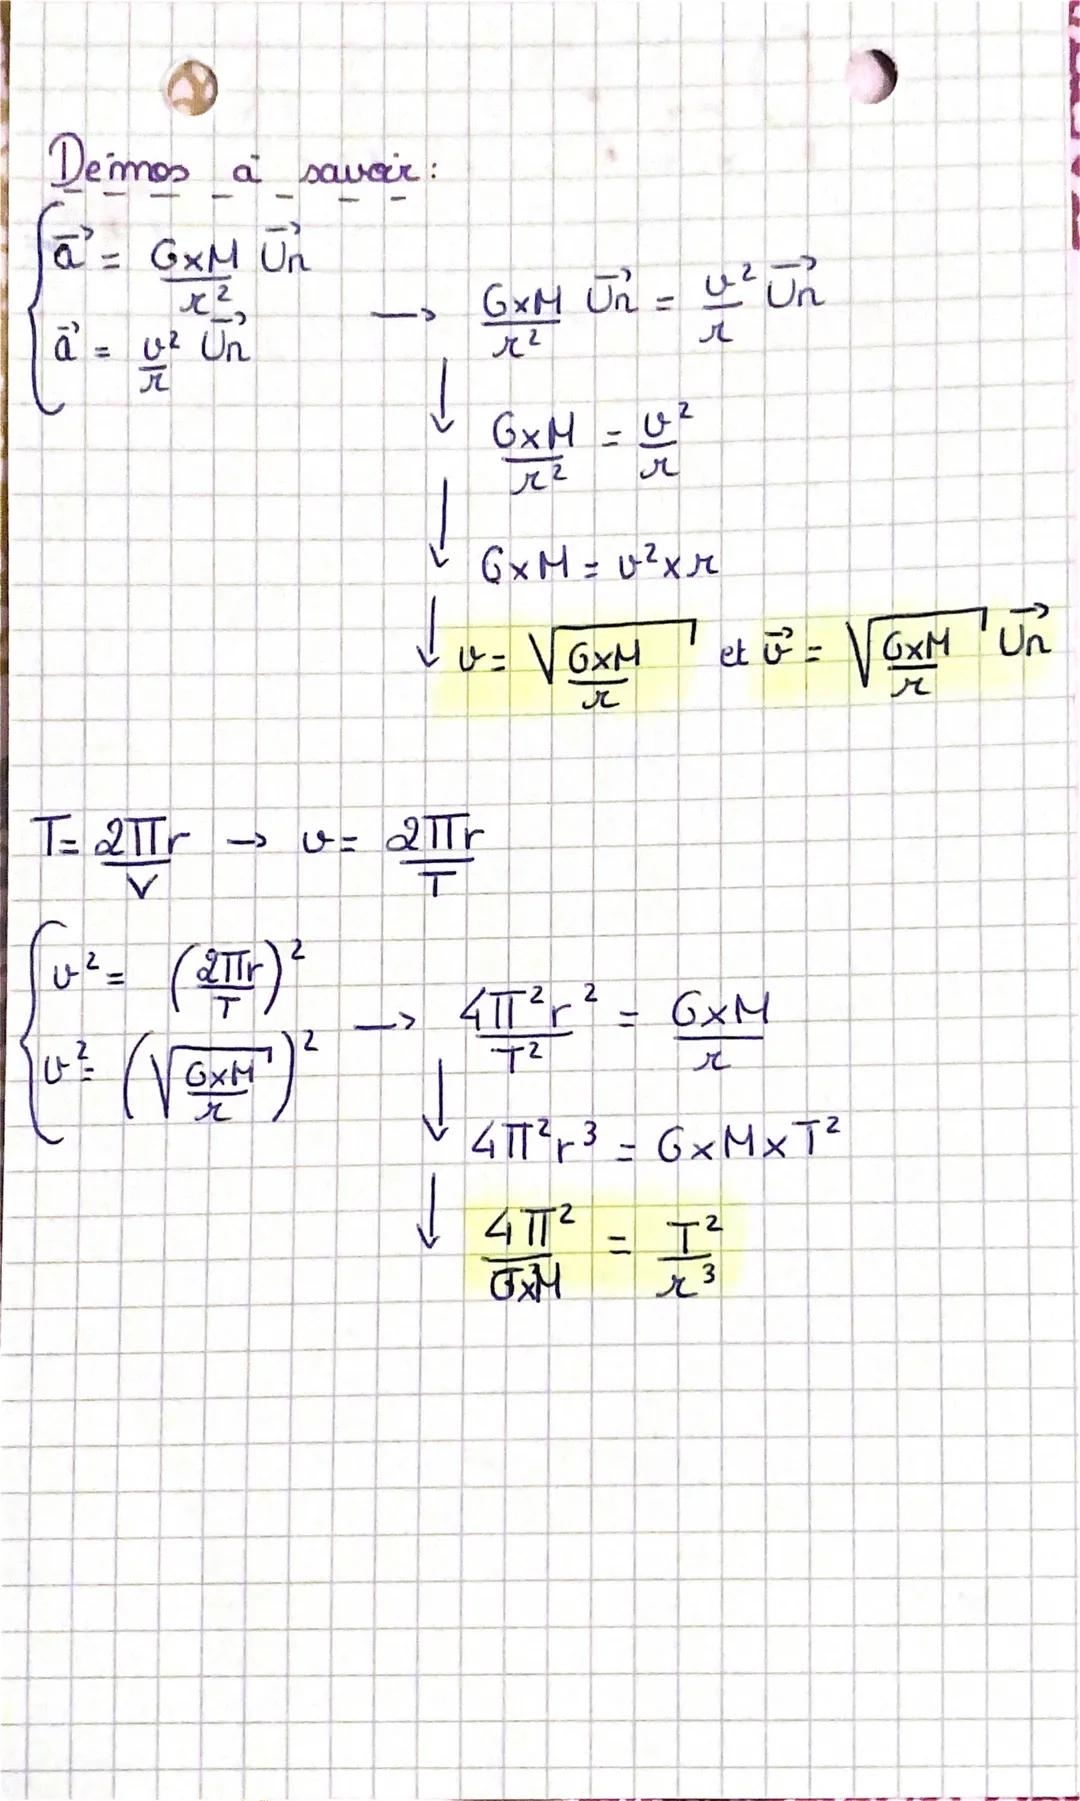 Démos à savoir :
a⃗ = G×M/r² U⃗n
a⃗ = v²/r U⃗n
→ G×M/r² U⃗n = v²/r U⃗n
↓ G×M/r² = v²/r
↓ G×M = v²×r
↓ v = √(G×M/r) et v⃗ = √(G×M/r) U⃗n
T = 2πr/V → v = 2πr/T
v² = (2πr/T)²
v² = (√(G×M/r))²
→ 4π²r²/T² = G×M/r
↓ 4π²r³ = G×M×T²
↓ 4π²/G×M = T²/r³